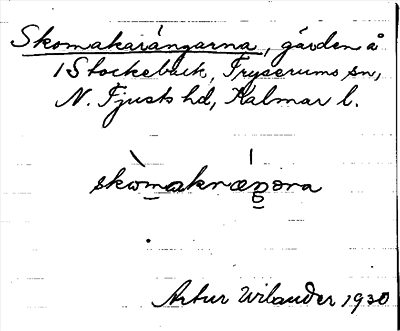 Skomakarängarna, gärden å
1 Stockebäck, Tryserums sn,
N. Tjusts hd, Kalmar l.
skòmaknæŋɔrna
Artur Wilander 1930